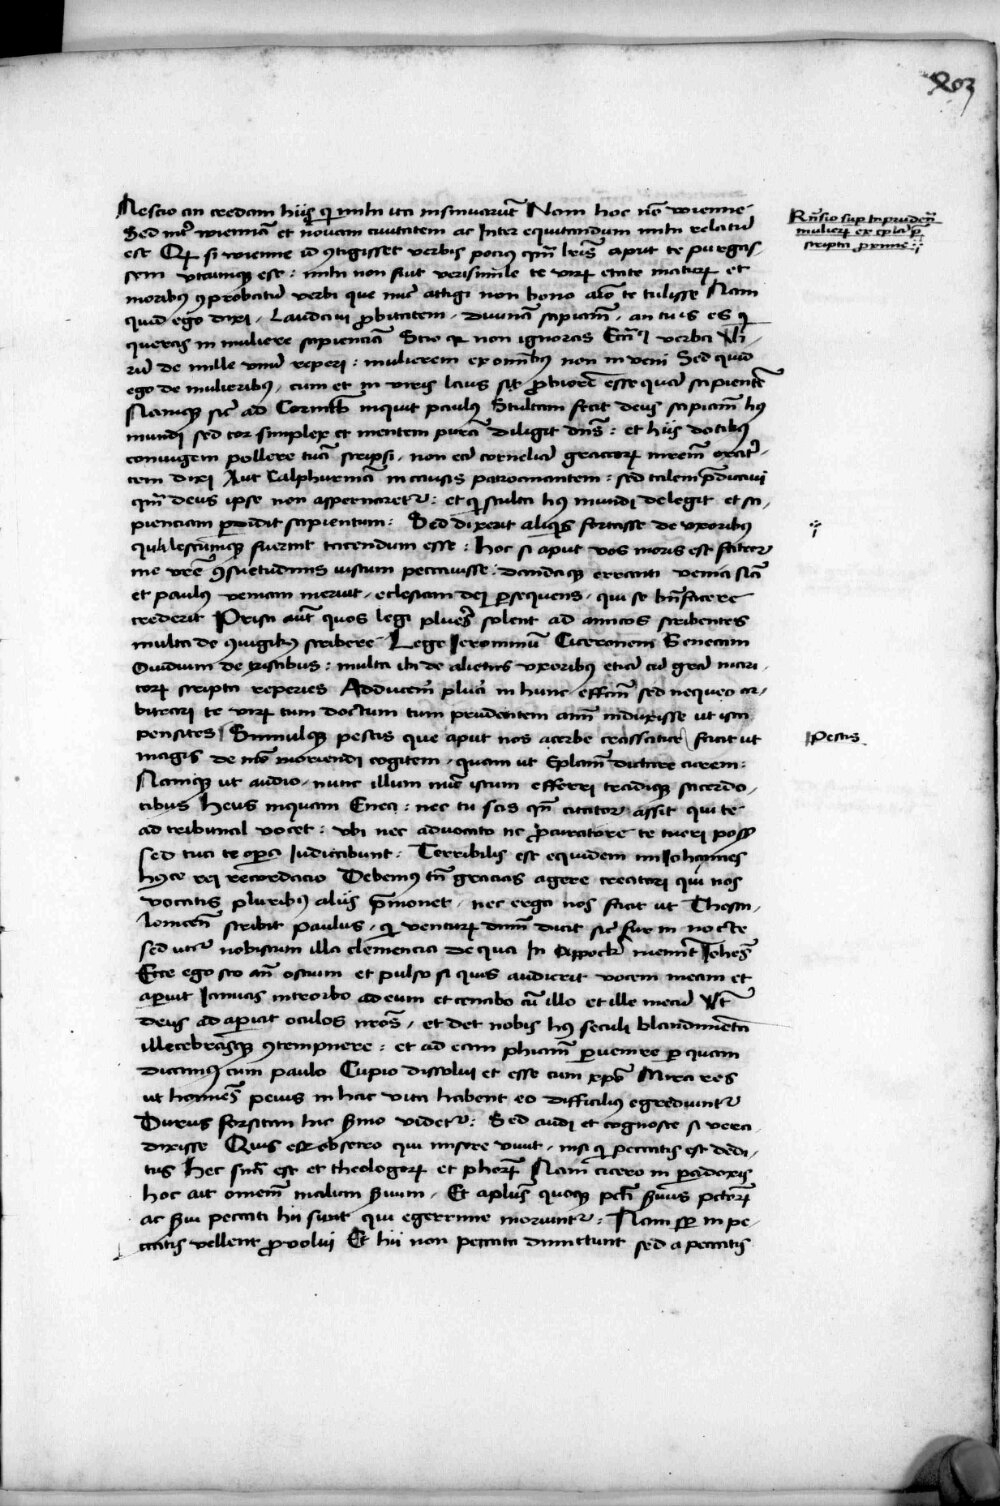 Nescio an credam hijs qui michi ita insinuarunt Nam hoc non wienne
Sed inter wiennam et nouam ciuitatem ac inter equitandum michi relatum
est Quod si wienne id contigisset verbis pocius quam litteris aput te purgas-
sem vtcumque est : michi non fuit verisimile te virum etate maturum et
moribus comprobatum verbi que nunc attigi non bono animo te tulisse Nam
quid ego dixi / Laudaui probitatem / diuinam sapienciam / an tu is es qui
queras in muliere sapienciam Scio quod non ignoras verba Vi-
rum de mille vnum reperi : mulierem ex omnibus non inueni Sed quid
ego de mulieribus / cum et in viris laus sit probiorem esse quam sapientem
Namque sic ad Corinth inquit paulus Stultam fecit deus sapienciam huius
mundi sed cor simplex et mentem puram diligit dominus : et hijs dotibus
coniugem pollere tuam scripsi / non eam corneliam graccorum matrem oratri-
cem dixi Aut Calphurniam in causis patrocinantem : sed talem predicaui
quam deus ipse non aspernaretur : et qui stulta huius mundi delegit et sa-
pienciam perdidit sapientum : Sed dixerit aliquis fortasse de vxoribus
qualescumque fuerint tacendum esse : hoc si aput vos moris est fateor
me vestre consuetudinis inscium peccauisse : dandaque erranti venia sicut
et paulus veniam meruit / ecclesiam dei persequens / qui se benefacere
crederet Prisci autem quos legi plures solent ad amicos scribentes
multa de coniugibus scribere Lege Ieronimum Ciceronem Senecam
Ouidium de tristibus : multa ibi de alienis vxoribus eciam cum gracia mari-
torum scripta reperies Adducerem plura in hunc effectum sed nequeo ar-
bitrari te virum tum doctum tum prudentem animum induxisse ut ista
pensites / Simulque pestis que aput nos acerbe crassatur facit ut
magis de morte moriendi cogitem / quam ut Epistolam dictare curem :
Namque ut audio / nunc illum nunc istum efferri tradique sacerdo-
tibus heus inquam Enea : nec tu scis quando citator assit qui te
ad tribunal vocet : vbi nec aduocato nec procuratore te tueri possis
sed tua te opera iudicabunt : Terribilis est equidem mi Iohannes
huiusce rei recordacio Debemus tamen gracias agere creatori qui nos
vocatis pluribus alijs premonet / nec erga nos facit ut Thessa-
lonicen scribit paulus / qui venturum dominum dicit sicut fur in nocte
sed utitur nobiscum illa clemencia de qua In Appock meminit Iohannes
Ecce ego sto ante ostium et pulso si quis audierit vocem meam et
aperuit Ianuas introibo ad eum et cenabo cum illo et ille mecum Vtinam
deus adaperiat oculos nostros / et det nobis huius seculi blandimenta
illecebrasque contempnere : et ad eam philosophiam peruenire per quam
dicamus cum paulo Cupio dissolui et esse cum christo Mira res
ut homines peius in hac vita habent eo difficilius egrediuntur
Durus forsitan hic sermo videtur : Sed audi et cognosce si vera
dixisse Quis est obsecro qui misere viuit / nisi qui peccatis est dedi-
tus Hec sententia est et theologorum et philosophorum Nam cicero in paradoxis
hoc ait omnem malum seruum / Et apostolus quoque peccati seruus peccatorum
ac serui peccati hii sunt qui egerrime moriuntur : Nam semper in pe-
ccatis vellent prouolui Et hii non peccata dimittunt sed a peccatis
Pestis